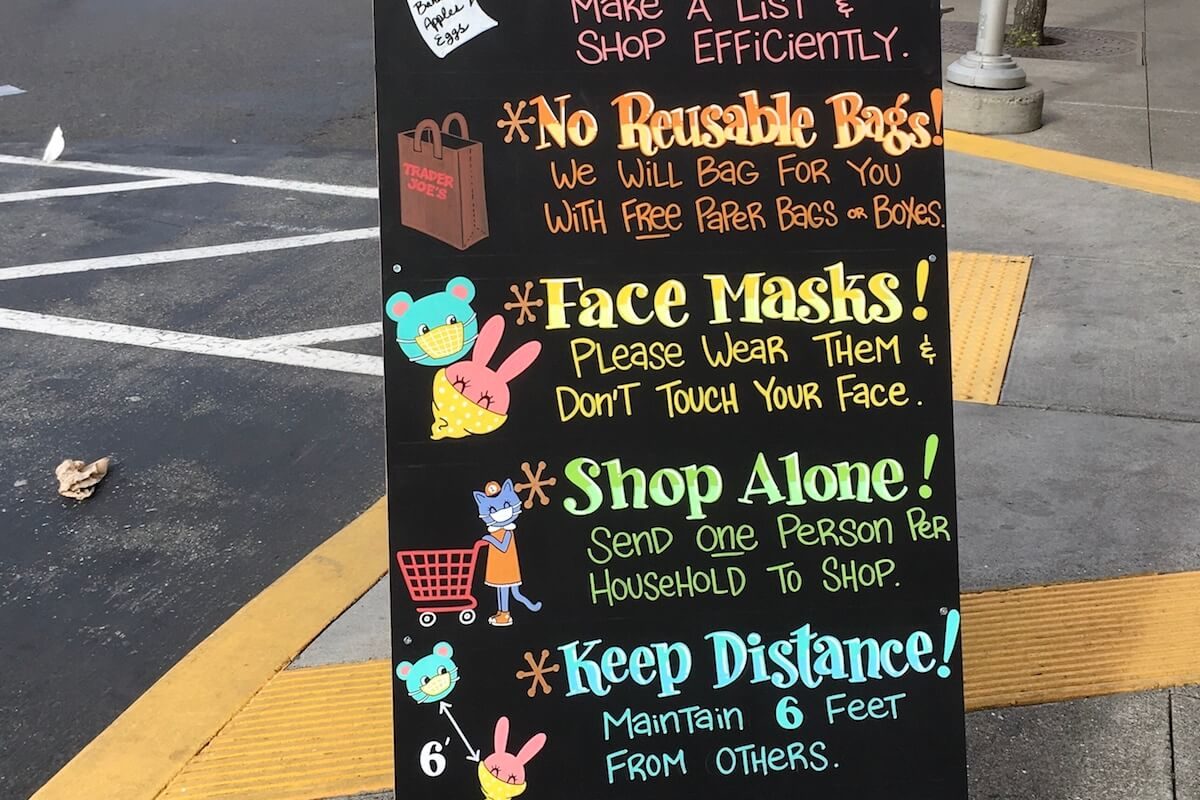 Apples
Eggs
Make A List &
Shop Efficiently.
*No Reusable Bags!
We Will Bag For You
With Free Paper Bags or Boxes.
TRADER
JOE'S
*Face Masks!
Please Wear Them &
Don't Touch Your Face.
*Shop Alone!
Send one Person Per
Household To Shop.
*Keep Distance!
Maintain 6 Feet
From Others.
6'